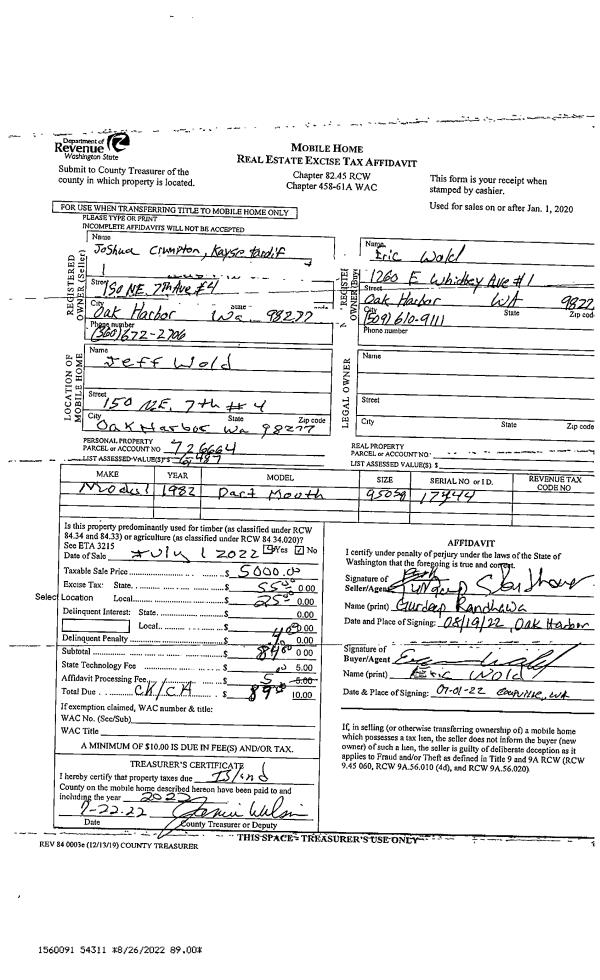 Department of
Revenue
Washington State
Submit to County Treasurer of the
county in which property is located.
MOBILE HOME
REAL ESTATE EXCISE TAX AFFIDAVIT
Chapter 82.45 RCW
Chapter 458-61A WAC
This form is your receipt when
stamped by cashier.
Used for sales on or after Jan. 1, 2020
FOR USE WHEN TRANSFERRING TITLE TO MOBILE HOME ONLY
PLEASE TYPE OR PRINT
INCOMPLETE AFFIDAVITS WILL NOT BE ACCEPTED
REGISTERED
OWNER (Seller)
Name
Joshua Crumpton, Kayse Tardif
Street 150 NE. 7th Ave #4
City State
Oak Harbor Wa 98277
Phone number
(360) 672-2706
Name
Eric Wold
1260 E Whidbey Ave #1
Street
Oak Harbor WA 9822
City State Zip code
(509) 610-9111
Phone number
LOCATION OF
MOBILE HOME
Name
Jeff Wold
Street
150 NE. 7th #4
City State Zip code
Oak Harbor Wa 98277
LEGAL OWNER
Name
Street
City State Zip code
PERSONAL PROPERTY
PARCEL or ACCOUNT NO. 726664
LIST ASSESSED VALUE(S) $
REAL PROPERTY
PARCEL or ACCOUNT NO.
LIST ASSESSED VALUE(S) $
MAKE YEAR MODEL SIZE SERIAL NO. or I.D. REVENUE TAX CODE NO
1982 Dart Mouth 17444
Is this property predominantly used for timber (as classified under RCW
84.34 and 84.33) or agriculture (as classified under RCW 84.34.020)?
See ETA 3215 Yes No
Date of Sale July 1 2022
Taxable Sale Price $ 5000.00
Excise Tax: State $ 55.00 0.00
Select Location Local $ 25.00 0.00
Delinquent Interest: State $ 0.00
Local $ 0.00
Delinquent Penalty $ 4.00
Subtotal $ 84.00 0.00
State Technology Fee $ 5.00
Affidavit Processing Fee $ 5 5.00
Total Due CK/CA $ 89.00 10.00
If exemption claimed, WAC number & title:
WAC No. (Sec/Sub)
WAC Title
A MINIMUM OF $10.00 IS DUE IN FEE(S) AND/OR TAX.
TREASURER'S CERTIFICATE
I hereby certify that property taxes due Island
County on the mobile home described hereon have been paid to and
including the year 2022
7-22-22
Date County Treasurer or Deputy
AFFIDAVIT
I certify under penalty of perjury under the laws of the State of
Washington that the foregoing is true and correct.
Signature of
Seller/Agent
Name (print) Gurdeep Randhawa
Date and Place of Signing: 08/19/22, Oak Harbor
Signature of
Buyer/Agent
Name (print) Eric Wold
Date & Place of Signing: 07-01-22 Coupville, WA
If, in selling (or otherwise transferring ownership of) a mobile home
which possesses a tax lien, the seller does not inform the buyer (new
owner) of such a lien, the seller is guilty of deliberate deception as it
applies to Fraud and/or Theft as defined in Title 9 and 9A RCW (RCW
9.45 060, RCW 9A.56.010 (4d), and RCW 9A.56.020).
THIS SPACE - TREASURER'S USE ONLY
REV 84 0003e (12/13/19) COUNTY TREASURER
1560091 54311 *8/26/2022 89.00*